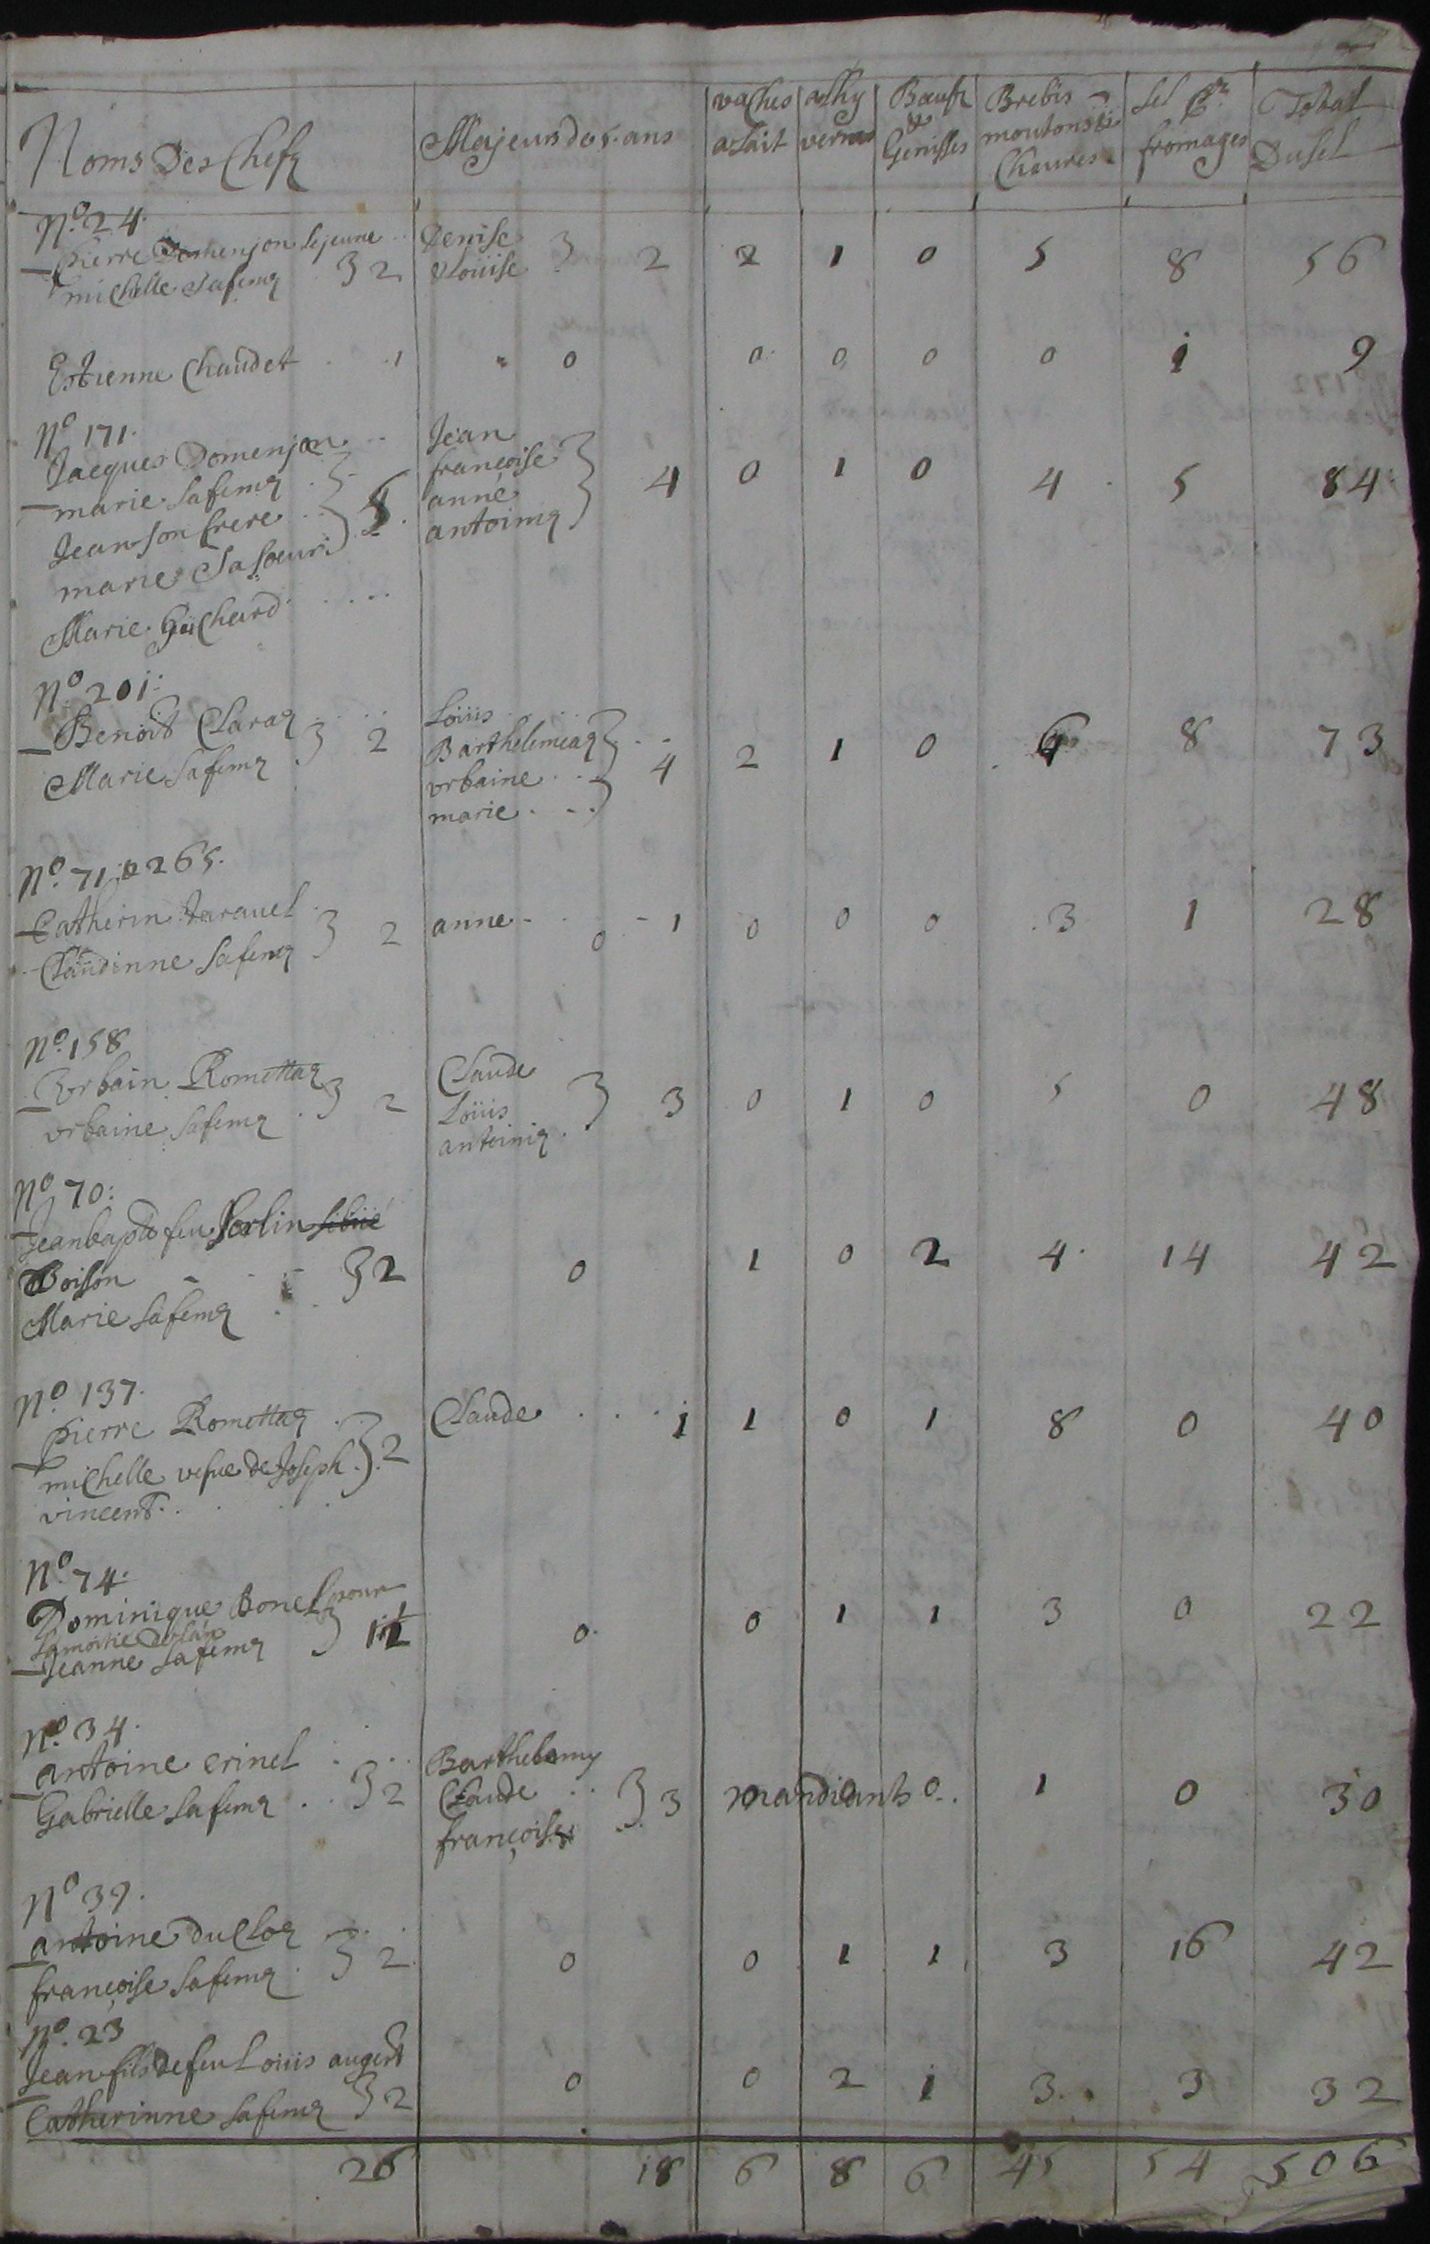 Noms Des Chefz Majeurs de 5. ans vaches a lait a lhy verna Bœufz & Genisses Brebis moutons & Chevres Sel pr fromages Total Du sel
No. 24.
Pierre Domenjon le jeune Denise
michelle sa feme 3 2 & Loüise 3 2 2 1 0 5 8 56
Estienne Chaudet 1 0 0 0 0 0 1 9
No 171.
Jacques Domenjon Jean
marie sa feme francoise
Jean son frere anne 4 0 1 0 4 5 84
marie sa soeur antoima
Marie Guichard
No 201:
Benoit Claraz Loüis
Marie sa feme 3 2 Barthelemeaz 4 2 1 0 6 8 73
vrbaine
marie
No. 71 265.
Catherin Jarauel
Claudinne sa feme 3 2 anne 0 1 0 0 0 3 1 28
No. 158
Vrbain Romettaz Claude
vrbaine sa feme 3 2 Loüis 3 3 0 1 0 5 0 48
antoinia
No 70:
Jean bapte feu Sorlin
Boison 3 2 0 1 0 2 4 14 42
Marie sa feme
No 137.
Pierre Romettaz Claude 1 1 0 1 8 0 40
michelle vefue de Joseph 3 2
vincent
No. 74.
Dominique Bonel pour
la moitie de lan
Jeanne sa feme 3 1 1/2 0 0 1 1 3 0 22
No. 34.
antoine crinel Barthelemy
Gabrielle sa feme 3 2 Claude 3 3 mandiants 0 1 0 30
françoise
No 39.
antoine du Cloz
françoise sa feme 3 2 0 0 1 1 3 16 42
No. 23
Jean fils de feu Loüis augert
Catherinne sa feme 3 2 0 0 2 1 3 3 32
26 18 6 8 6 45 54 506